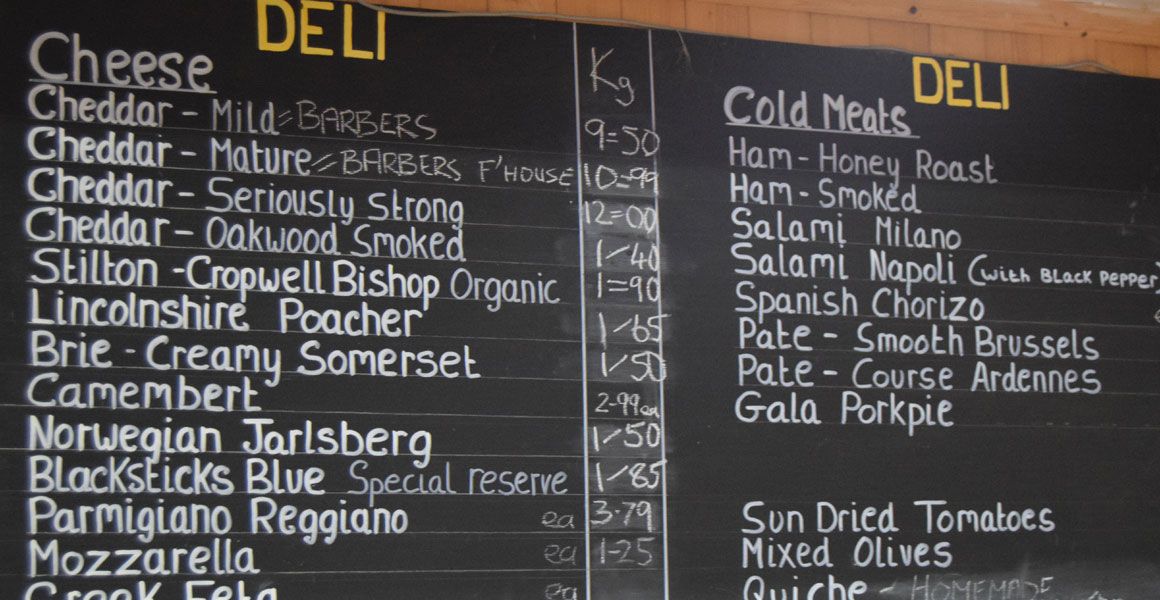 DELI
Cheese Kg
Cheddar - Mild = BARBERS 9=50
Cheddar - Mature = BARBERS F'HOUSE 10=99
Cheddar - Seriously Strong 12=00
Cheddar - Oakwood Smoked 1/40
Stilton - Cropwell Bishop Organic 1=90
Lincolnshire Poacher 1/65
Brie - Creamy Somerset 1/50
Camembert 2-99ea
Norwegian Jarlsberg 1/50
Blacksticks Blue Special reserve 1/85
Parmigiano Reggiano ea 3-79
Mozzarella ea 1-25
Greek Feta ea
DELI
Cold Meats
Ham - Honey Roast
Ham - Smoked
Salami Milano
Salami Napoli (with BLACK PEPPER)
Spanish Chorizo
Pate - Smooth Brussels
Pate - Course Ardennes
Gala Porkpie
Sun Dried Tomatoes
Mixed Olives
Quiche - HOMEMADE